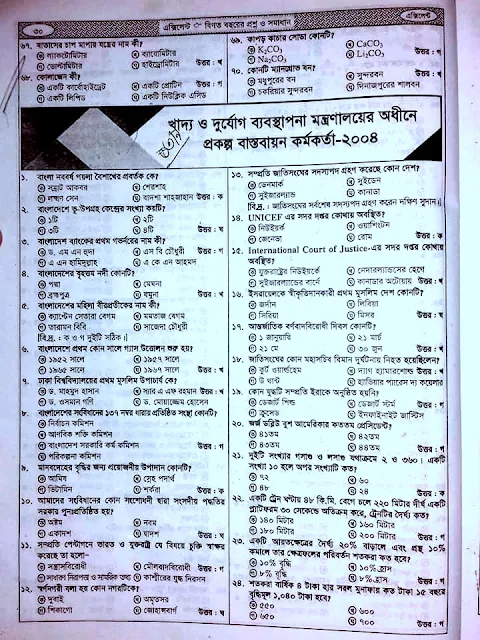 ৩০
এক্সিলেন্ট বিগত বছরের প্রশ্ন ও সমাধান
এক্সিলেন্ট
৬৭. বাতাসের চাপ মাপার যন্ত্রের নাম কী?
ল্যাকটোমিটার ব্যারোমিটার
ভোল্টামিটার হাইড্রোমিটার উত্তর: খ
৬৮. কোলাজেন কী?
একটি কার্বোহাইড্রেট একটি প্রোটিন উত্তর: খ
একটি লিপিড একটি নিউক্লিক এসিড
৬৯. কাপড় কাচার সোডা কোনটি?
K₂CO₃ CaCO₃
Na₂CO₃ Li₂CO₃ উত্তর: গ
৭০. কোনটি ম্যানগ্রোভ বন?
মধুপুরের বন সুন্দরবন উত্তর: খ
চকরিয়ার সুন্দরবন দিনাজপুরের শালবন
খাদ্য ও দুর্যোগ ব্যবস্থাপনা মন্ত্রণালয়ের অধীনে
প্রকল্প বাস্তবায়ন কর্মকর্তা-২০০৪
১. বাংলা নববর্ষ পয়লা বৈশাখের প্রবর্তক কে?
সম্রাট আকবর শেরশাহ
লক্ষণ সেন বাদশা শাহজাহান উত্তর: ক
২. বাংলাদেশে কৃ-উপগ্রহ কেন্দ্রের সংখ্যা কয়টি?
১টি ২টি
৩টি ৪টি উত্তর: ঘ
৩. বাংলাদেশ ব্যাংকের প্রথম গভর্নরের নাম কী?
ড. এম এন হুদা এস বি চৌধুরী উত্তর: গ
এ এন হামিদুল্লাহ এ কে এন আহমদ
৪. বাংলাদেশের বৃহত্তম নদী কোনটি?
পদ্মা মেঘনা
ব্রহ্মপুত্র যমুনা উত্তর: খ
৫. বাংলাদেশের মহিলা বীরপ্রতীকের নাম কী?
ক্যাপ্টেন সেতারা বেগম মমতাজ বেগম
তারামন বিবি সাজেদা চৌধুরী
বি.দ্র.: ক ও গ দুইটি সঠিক।
৬. বাংলাদেশে প্রথম কোন সালে গ্যাস উত্তোলন শুরু হয়?
১৯৫২ সালে ১৯৫৭ সালে
১৯৬৫ সালে ১৯৬৭ সালে উত্তর: খ
৭. ঢাকা বিশ্ববিদ্যালয়ের প্রথম মুসলিম উপাচার্য কে?
ড. মাহমুদ হাসান স্যার এ এফ রহমান উত্তর: খ
ড. ওসমান গণি ড. মোয়াজ্জেম হোসেন
৮. বাংলাদেশের সংবিধানের ১৩৭ নম্বর ধারায় প্রতিষ্ঠিত সংস্থা কোনটি?
নির্বাচন কমিশন
আণবিক শক্তি কমিশন
বাংলাদেশ সরকারি কর্ম কমিশন উত্তর: গ
পরিকল্পনা কমিশন
৯. মানবদেহের বৃদ্ধির জন্য প্রয়োজনীয় উপাদান কোনটি?
আমিষ স্নেহ পদার্থ
ভিটামিন শর্করা উত্তর: ক
১০. আমাদের সংবিধানের কোন সংশোধনী দ্বারা সংসদীয় পদ্ধতির
সরকার পুনঃপ্রতিষ্ঠিত হয়?
অষ্টম নবম
একাদশ দ্বাদশ উত্তর: ঘ
১১. সম্প্রতি পেন্টাগনে ভারত ও যুক্তরাষ্ট্র যে বিষয়ে চুক্তি স্বাক্ষর
করেছে তা হলো-
সন্ত্রাসবিরোধী মৌলবাদবিরোধী উত্তর: গ
সাধারণ নিরাপত্তা ও সামরিক তথ্য কাশ্মীরের যুদ্ধ নিরসন
১২. স্বর্ণনগরী বলা হয় কোন নগরটিকে?
দুবাই অমৃতসর
শিকাগো জোহান্সবার্গ উত্তর: ঘ
১৩. সম্প্রতি জাতিসংঘের সদস্যপদ গ্রহণ করেছে কোন দেশ?
ডেনমার্ক সুইডেন
সুইজারল্যান্ড কানাডা উত্তর: গ
[বি.দ্র.: জাতিসংঘের সর্বশেষ সদস্যপদ গ্রহণ করেন দক্ষিণ সুদান।]
১৪. UNICEF এর সদর দপ্তর কোথায় অবস্থিত?
নিউইয়র্ক ওয়াশিংটন
জেনেভা রোম উত্তর: ক
১৫. International Court of Justice-এর সদর দপ্তর কোথায়
অবস্থিত?
যুক্তরাষ্ট্রের নিউইয়র্কে নেদারল্যান্ডসের হেগে
সুইজারল্যান্ডের বার্নে কানাডার অটোয়ায় উত্তর: খ
১৬. ইসরায়েলকে স্বীকৃতিদানকারী প্রথম মুসলিম দেশ কোনটি?
জর্দান লিবিয়া
সিরিয়া মিসর উত্তর: ঘ
১৭. আন্তর্জাতিক বর্ণবাদবিরোধী দিবস কোনটি?
১ জানুয়ারি ২১ মার্চ
২১ মে ৩০ জুন উত্তর: খ
১৮. জাতিসংঘের কোন মহাসচিব বিমান দুর্ঘটনায় নিহত হয়েছিলেন?
কুর্ট ওয়ার্ল্ডহেম দ্যাগ হ্যামারশোল্ড উত্তর: খ
উ থান্ট হ্যাভিয়ার প্যারেস দ্য কুয়েলার
১৯. কোন যুদ্ধটি সম্প্রতি ইরাকে অনুষ্ঠিত হয়নি?
ডেজার্ট শিল্ড ডেজার্ট স্টর্ম উত্তর: গ
ক্রুসেড ইনফাইনাইট জাস্টিস
২০. জর্জ ডব্লিউ বুশ আমেরিকার কততম প্রেসিডেন্ট?
৪১তম ৪২তম
৪৩তম ৪৪তম উত্তর: গ
২১. দুইটি সংখ্যার গসাগু ও লসাগু যথাক্রমে ২ ও ৩৬০। একটি
সংখ্যা ১০ হলে অপর সংখ্যাটি কত?
৭২ ৬০
৪৮ ২৪ উত্তর: ক
২২. একটি ট্রেন ঘণ্টায় ৪৮ কি.মি. বেগে চলে ২২০ মিটার দীর্ঘ একটি
প্লাটফরম ৩০ সেকেন্ডে অতিক্রম করে, ট্রেনটির দৈর্ঘ্য কত?
১৪০ মিটার ১৬০ মিটার
১৮০ মিটার ২০০ মিটার উত্তর: গ
২৩. একটি আয়তক্ষেত্রের দৈর্ঘ্য ২০% বাড়ালে এবং প্রস্থ ১০%
কমালে তার ক্ষেত্রফলের পরিবর্তন শতকরা কত হবে?
১০% বৃদ্ধি ১০% হ্রাস
৮% বৃদ্ধি ৮% হ্রাস উত্তর: গ
২৪. শতকরা বার্ষিক ৪ টাকা হার সরল মুনাফায় কত টাকা ১৫ বছরে
বৃদ্ধিমূল ১,০৪০ টাকা হবে?
৫৫০ ৬০০
৬৫০ ৭০০ উত্তর: গ